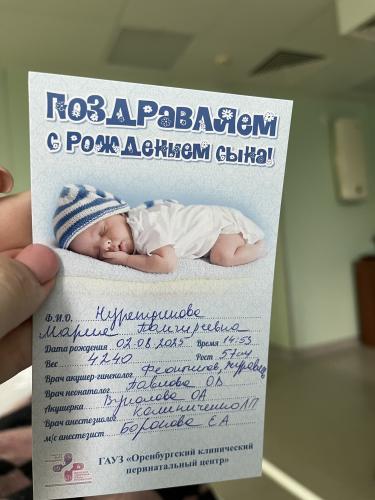 ПОЗДРАВЛЯЕМ
С РОЖДЕНИЕМ СЫНА!
Ф.И.О. Нуретдинова
Мария
Дата рождения 02.08.2025 Время 14:53
Вес 4240 Рост 57см
Врач акушер-гинеколог Феоктистов,
Врач неонатолог Павлова О.В
Акушерка О.А
Врач анестезиолог Калиниченко Л П
м/с анестезист Е.А
ГАУЗ «Оренбургский клинический
перинатальный центр»